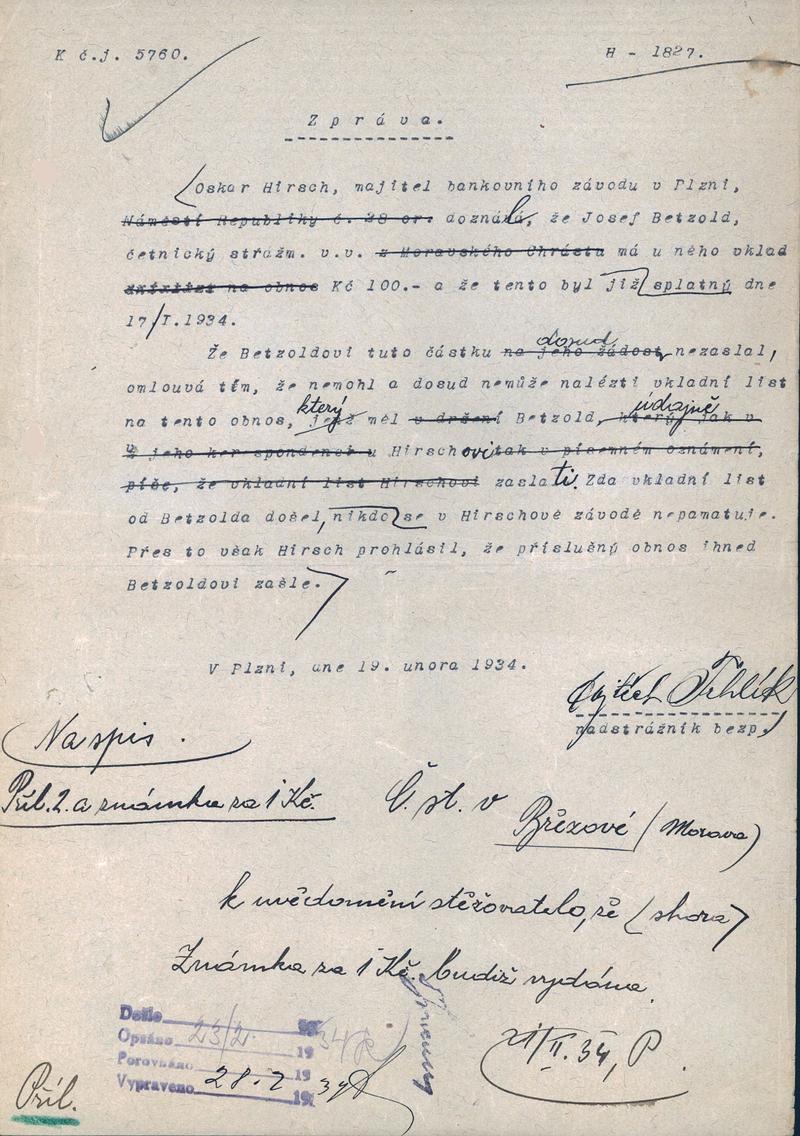 K č.j. 5760.
H - 1827.
Zpráva.
Oskar Hirsch, majitel bankovního závodu v Plzni,
Náměstí Republiky č. 28 or. doznává, že Josef Betzold,
četnický strážm. v.v. z Moravského Chrásta má u něho vklad
na obnos Kč 100.- a že tento byl již splatný dne
17/I.1934.
dosud
Že Betzoldovi tuto částku na jeho žádost, nezaslal,
omlouvá tím, že nemohl a dosud nemůže nalézti vkladní list
který
údajně
na tento obnos, jejž měl v držení Betzold, který jak v
jeho kor spondenci u Hirschovi tak v písemném oznámení,
píše, že vkladní list Hirschovi zaslati. Zda vkladní list
od Betzolda došel, nikdo se v Hirschově závodě nepamatuje.
Přes to však Hirsch prohlásil, že příslušný obnos ihned
Betzoldovi zašle.
V Plzni, dne 19. února 1934.
nadstrážník bezp.
Na spis.
Příl. 2. a známka za 1 Kč.
Č. st. v
Březové (Morava)
k uvědomění stěžovatele, že (shora)
Známka za 1 Kč. budiž vydána.
21/II.34, P.
Došlo
Opsáno 23/2. 1934
Porovnáno 19
Vypraveno 28.2 1934
Příl.